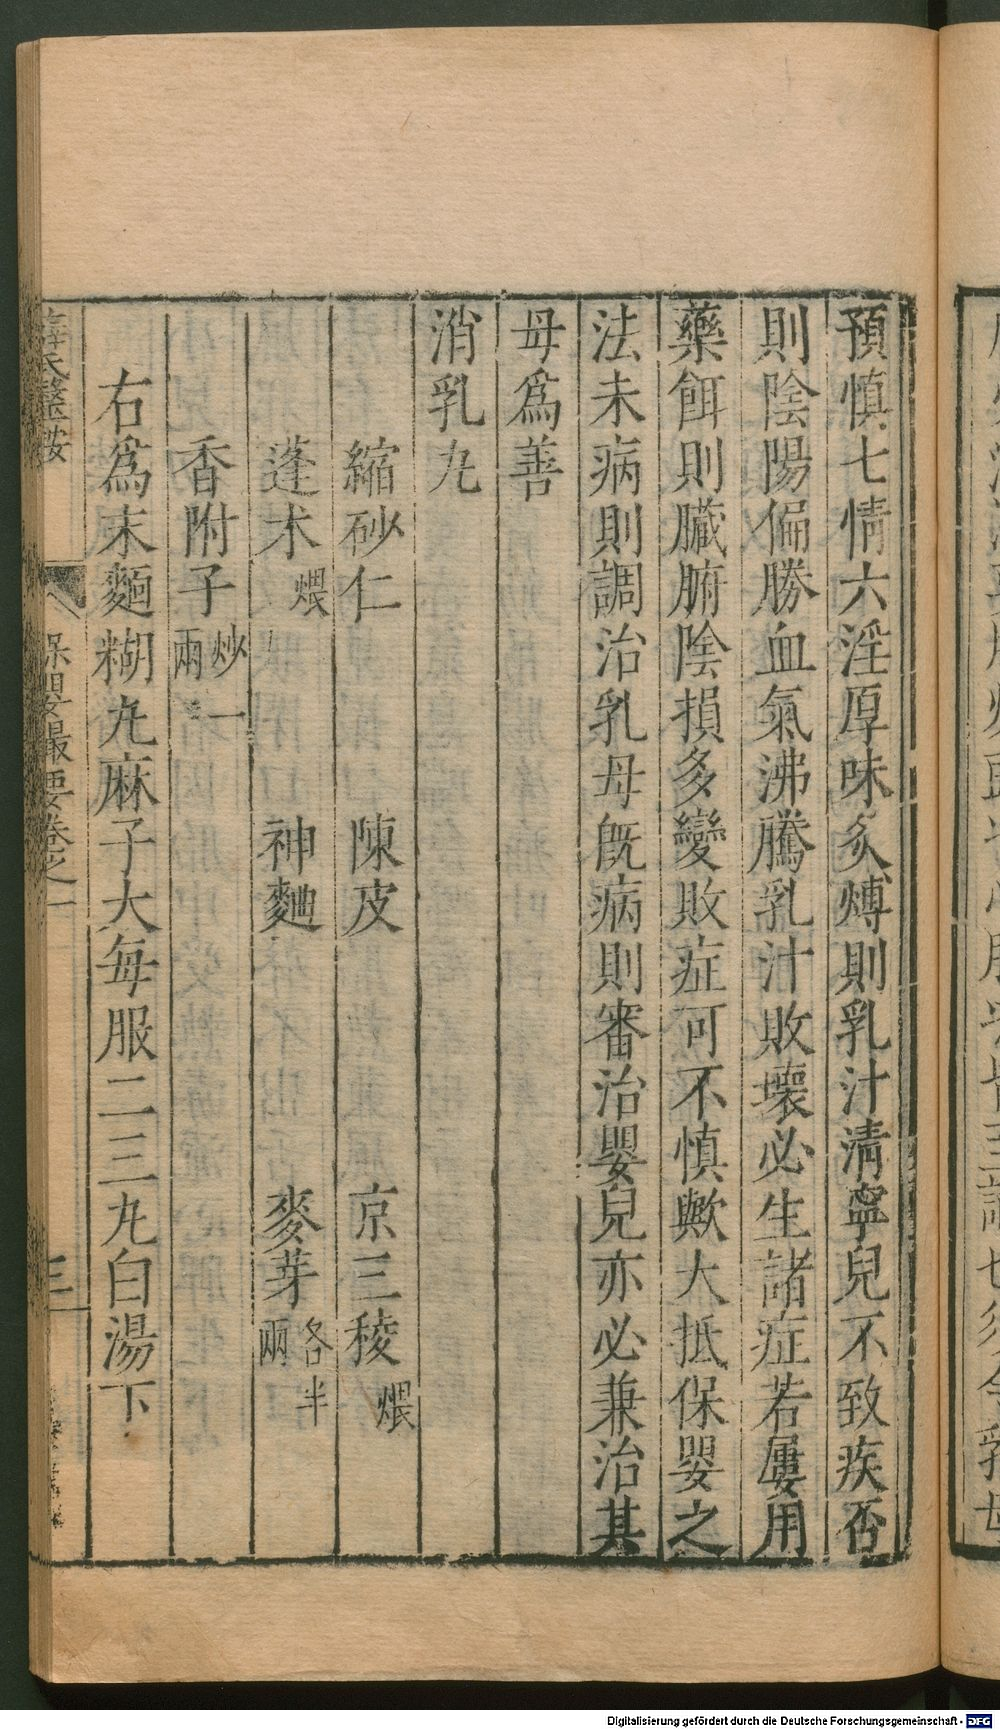 預慎七情六淫厚味炙煿則乳汁清寧兒不致疾否
則陰陽偏勝血氣沸騰乳汁敗壞必生諸症若屢用
藥餌則臟腑陰損多變敗症可不慎歟大抵保嬰之
法未病則調治乳母旣病則審治嬰兒亦必兼治其
母爲善
消乳丸
縮砂仁 陳皮 京三稜 煨
蓬术 煨 神麯 麥芽 各半兩
香附子 炒一兩
右爲末麵糊丸麻子大每服二三丸白湯下
薛氏醫按 保嬰撮要卷之一 三
Digitalisierung gefördert durch die Deutsche Forschungsgemeinschaft - DFG